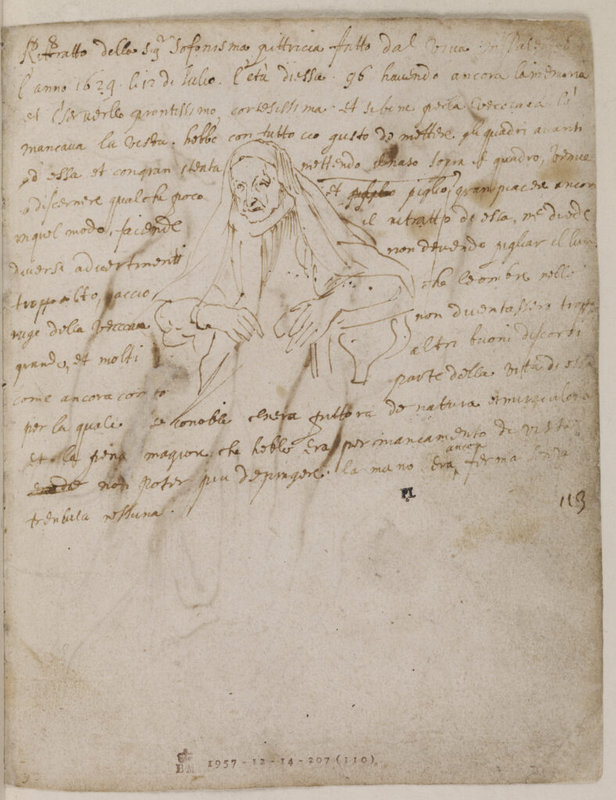 Rittratto della Sigra Sofonisma pittricia fatto dal vivo in Palermo
l'anno 1629 li 12 di Julio. l'età di essa 96 havendo ancora la memoria
et il serverllo prontissimo cortesissima. et si bene per la vecciaia la
mancava la vista. hebbe con tutto cio gusto de mettere gli quadri avanti
ad essa et con gran stenta mettendo il naso sopra il quadro, venne
a discernere qualche poco et piglio gran piacere ancora
in quel modo, facendo il ritratto de essa, me diede
diversi advertimenti non devendo pigliar il lume
troppo alto, accio che le ombre nelle
ruge della vecciaia non diventassero troppo
grande, et molti altri buoni discorsi
come ancora conto parte della vitta di essa
per la quale se conobbe chera pittora de natura et miraculosa
et la pena magiore che hebbe era per mancamento di vista
non poter piu depingere. la mano era ancora ferma senza
trembula nessuna.
PL
113
1957-12-14-207 (110)